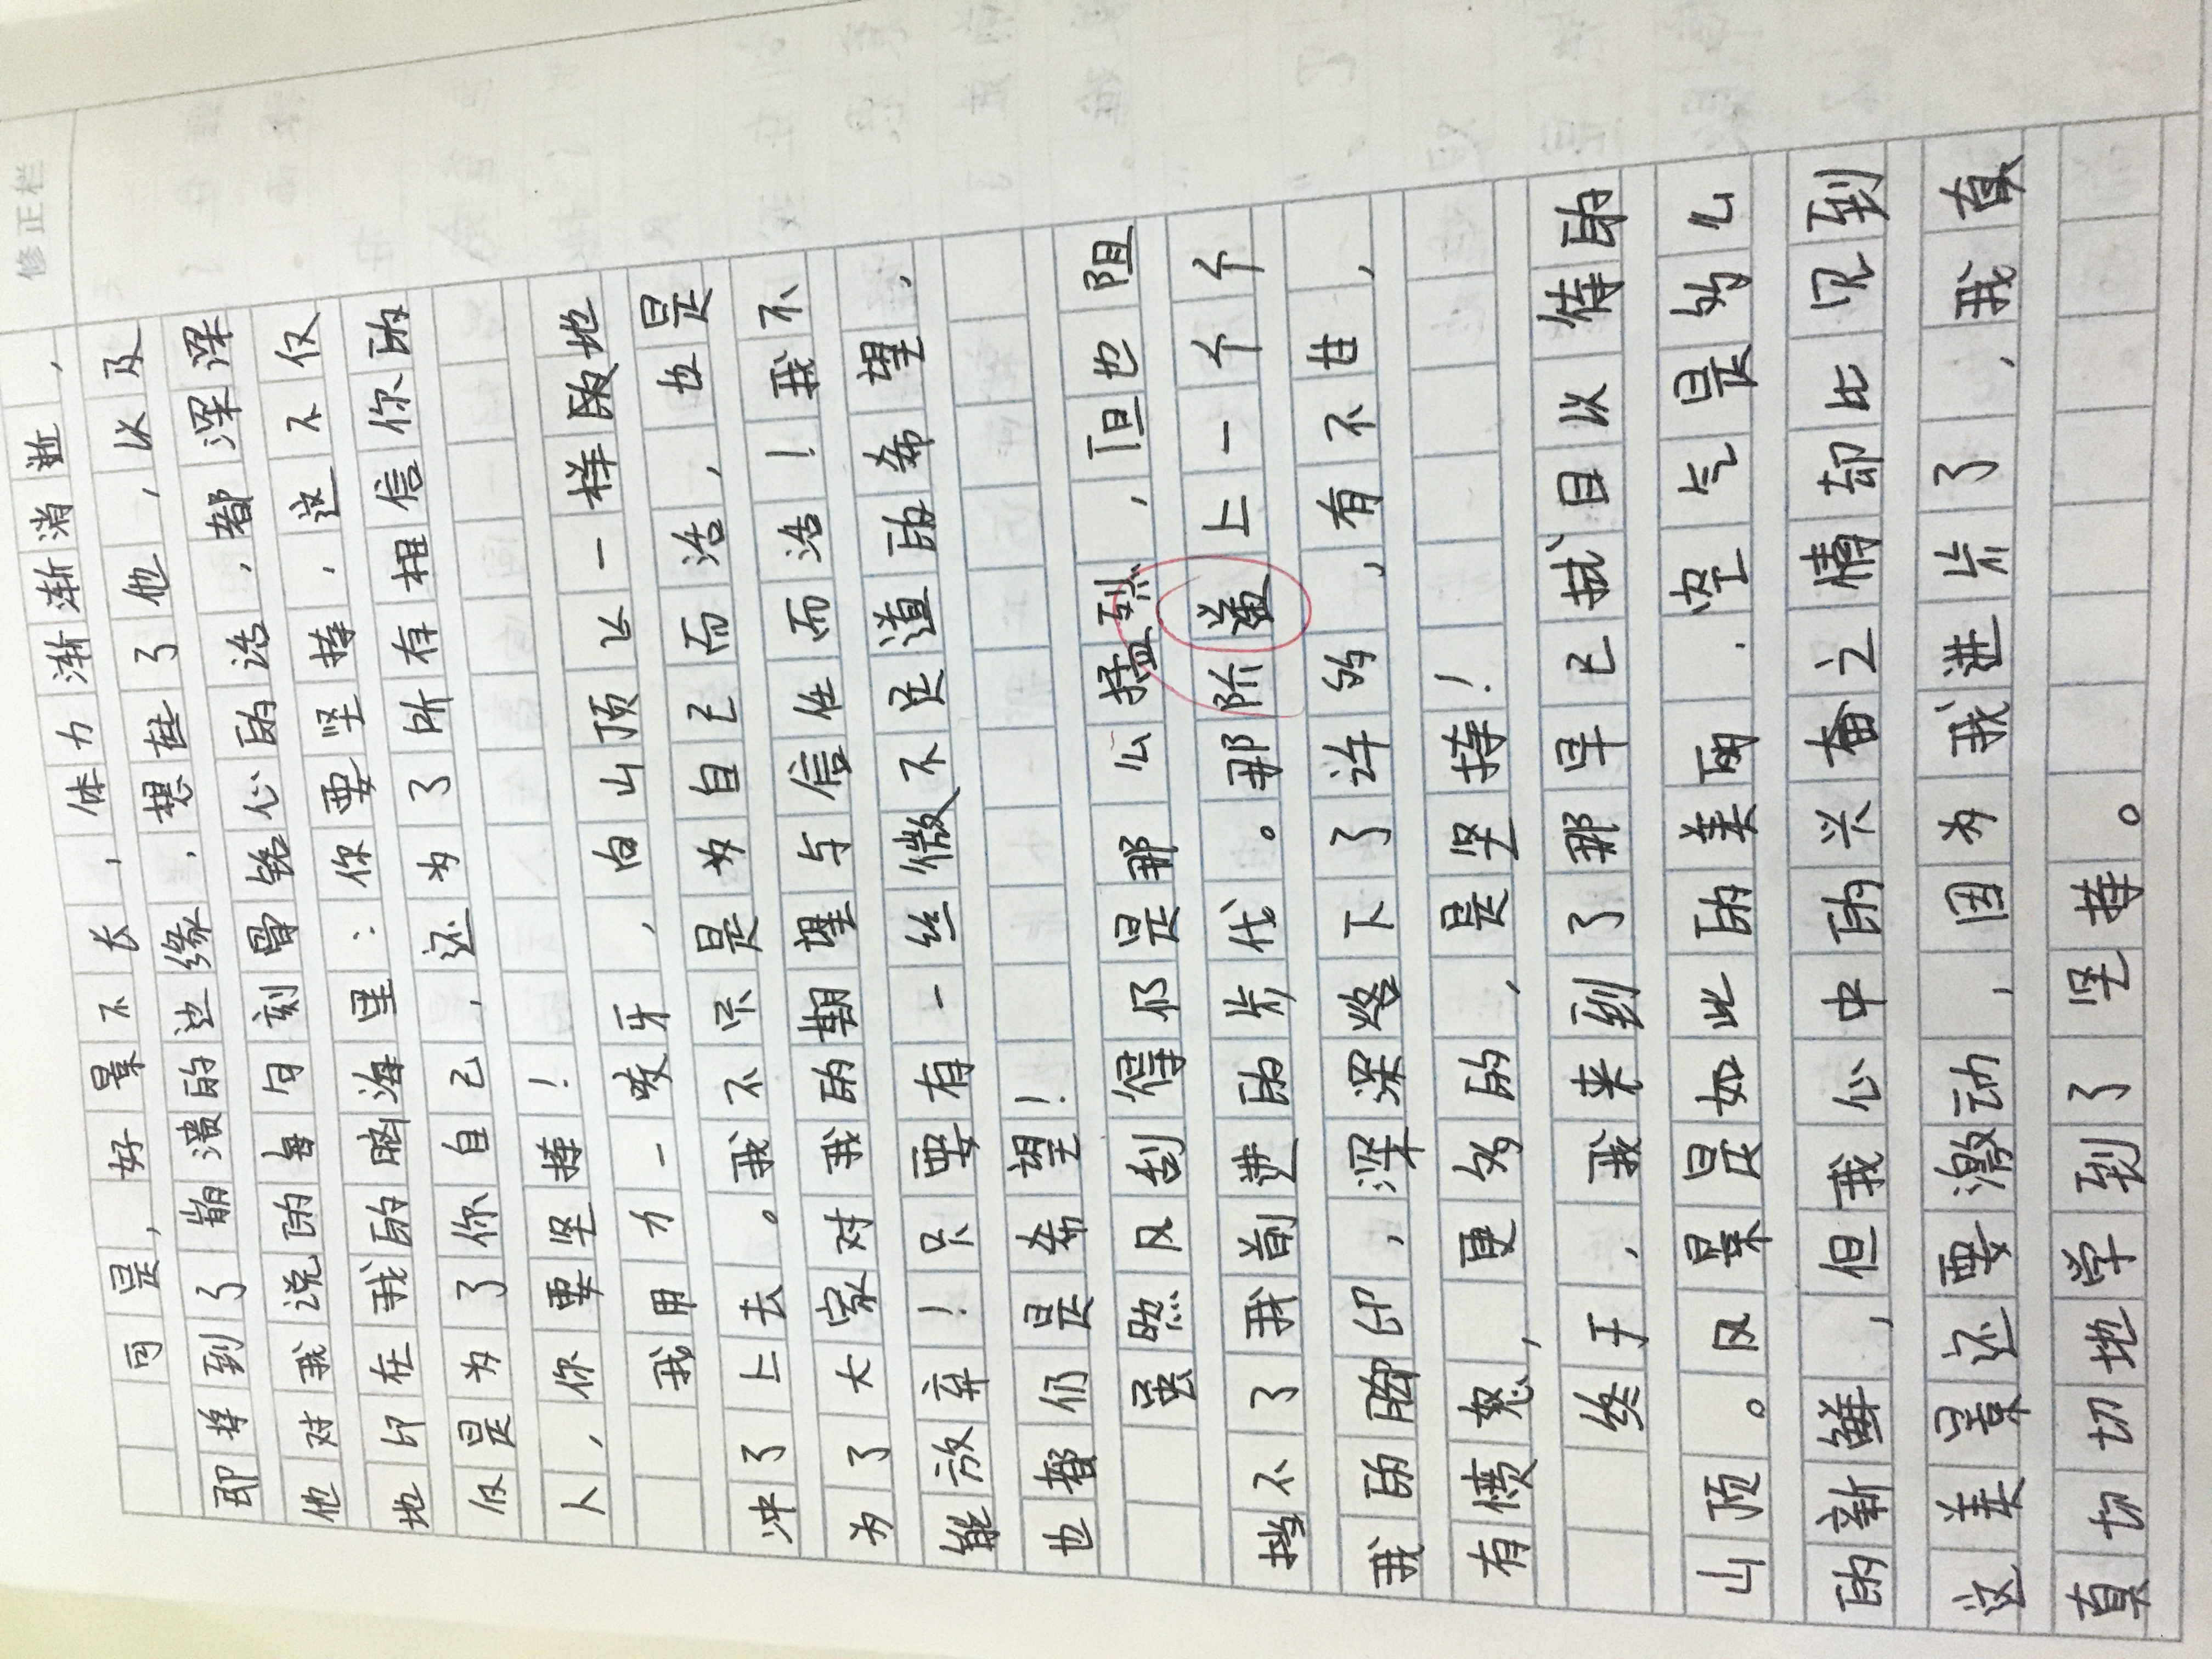 修正栏
可是，好景不长，体力渐渐消逝，
即将到了崩溃的边缘，想甚了他，以及
他对我说的每句刻骨铭心的话，都深深
地印在我的脑海里：你要坚持，这不仅
仅是为了你自己，还为了所有相信你的
人，你要坚持！
我用力一咬牙，向山顶飞一样般地
冲了上去。我不只是为自己而活，也是
为了大家对我的期望与信任而活！我不
能放弃！只要有一丝微不足道的希望，
也都仍是希望！
虽然风刮得仍是那么猛烈，但也阻
挡不了我前进的步伐。那阶道上一个个
我的脚印，深深烙下了许多，有不甘，
有愤怒，更多的，是坚持！
终于，我来到了那早已拭目以待的
山顶。风景是如此的美丽，空气是多么
的新鲜，但我心中的兴奋之情却比见到
这美景还要激动，因为我进步了，我真
真切切地学到了坚持。